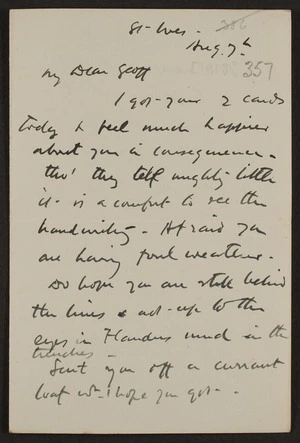 St- Ives - 386
Aug. 7th
357
My Dear Geoff
I got your 2 cards
today & feel much happier
about you in consequence -
tho' they tell mighty little
it is a comfort to see the
handwriting - Afraid you
are having foul weather.
Do hope you are still behind
the lines & not up to the
eyes in Flanders mud in the
trenches -
Sent you off a currant
loaf wh. I hope you got -